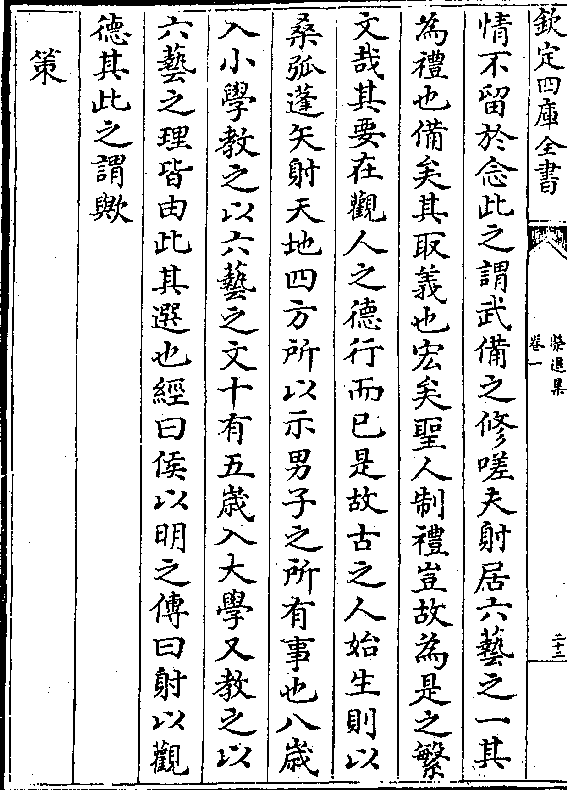 欽定四庫全書
卷一
二十二
情不留於念此之謂武備之修嗟夫射居六藝之一其
為禮也備矣其取義也宏矣聖人制禮豈故為是之繁
文哉其要在觀人之德行而已是故古之人始生則以
桑弧蓬矢射天地四方所以示男子之所有事也八歲
入小學教之以六藝之文十有五歲入大學又教之以
六藝之理皆由此其選也經曰侯以明之傳曰射以觀
德其此之謂歟
策